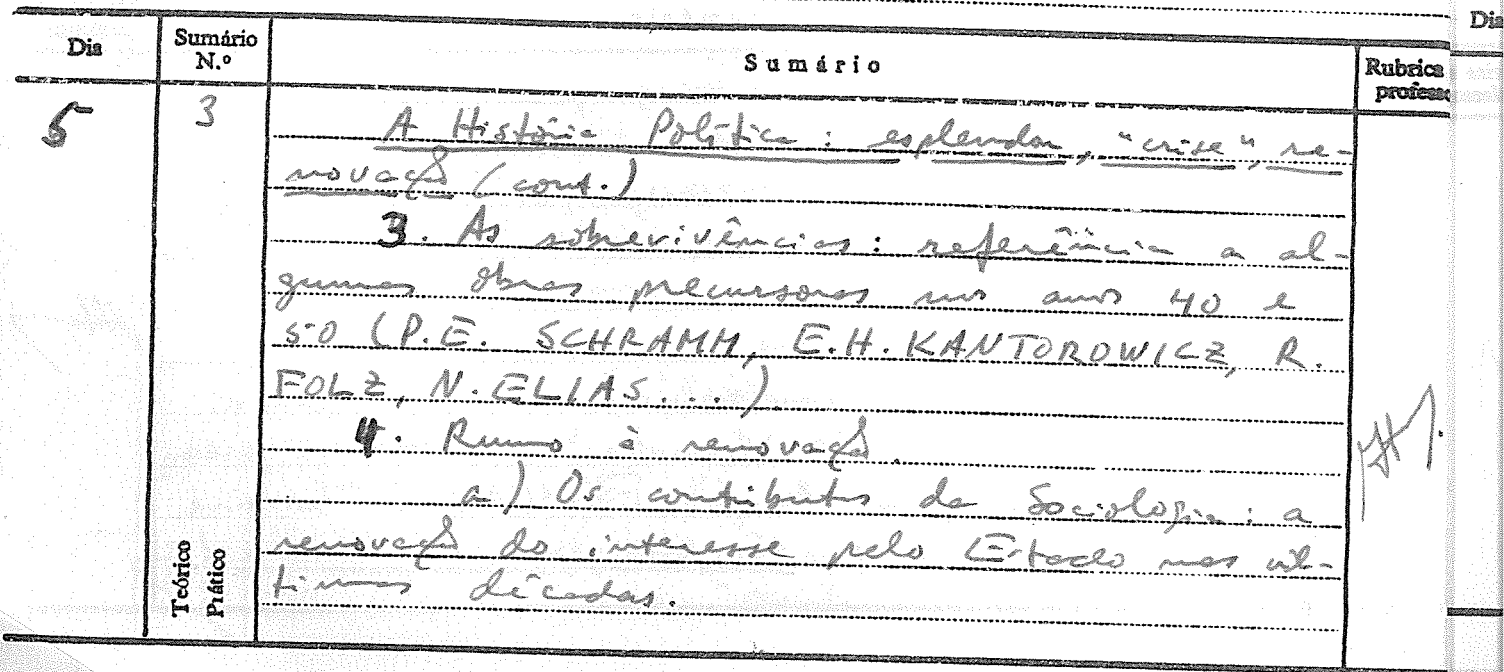 Dia
Sumário
N.º
Sumário
Rubrica
profess
Dia
5
3
A História Política: esplendor, "crise", re-
novação (cont.)
3. As sobrevivências: referência a al-
gumas obras precursoras nos anos 40 e
50 (P.E. SCHRAMM, E.H. KANTOROWICZ, R.
FOLZ, N. ELIAS...).
4. Rumo à renovação.
a) Os contributos da Sociologia: a
renovação do interesse pelo Estado nas úl-
timas décadas.
Teórico
Prático